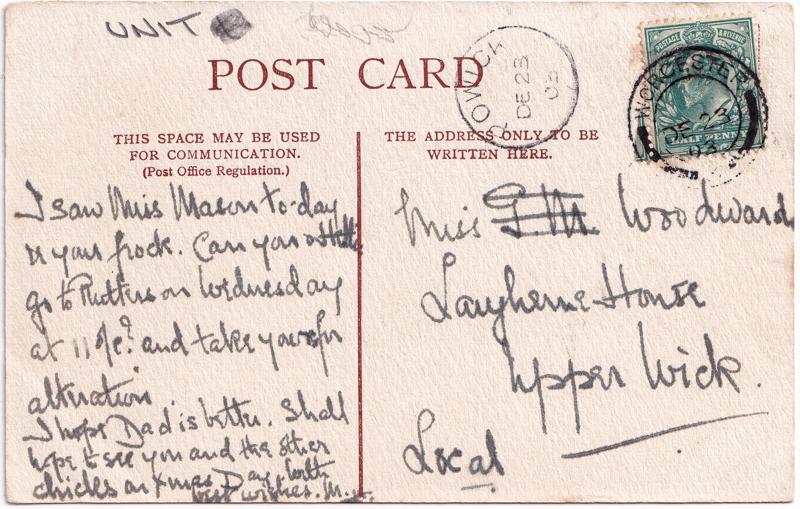 UNIT
POST CARD
POWICK
DE 23
03
POSTAGE & REVENUE
HALF PENNY
WORCESTER
DE 23
03
THIS SPACE MAY BE USED
FOR COMMUNICATION.
(Post Office Regulation.)
I saw Miss Mason to-day
re your frock. Can you &
go to Rutters on Wednesday
at 11 and take yours for
alteration.
I hope Dad is better. Shall
hope to see you and the other
chicks on Xmas Day. With
best wishes. M.
THE ADDRESS ONLY TO BE
WRITTEN HERE.
Miss Woodward
Laugherne House
Upper Wick.
Local